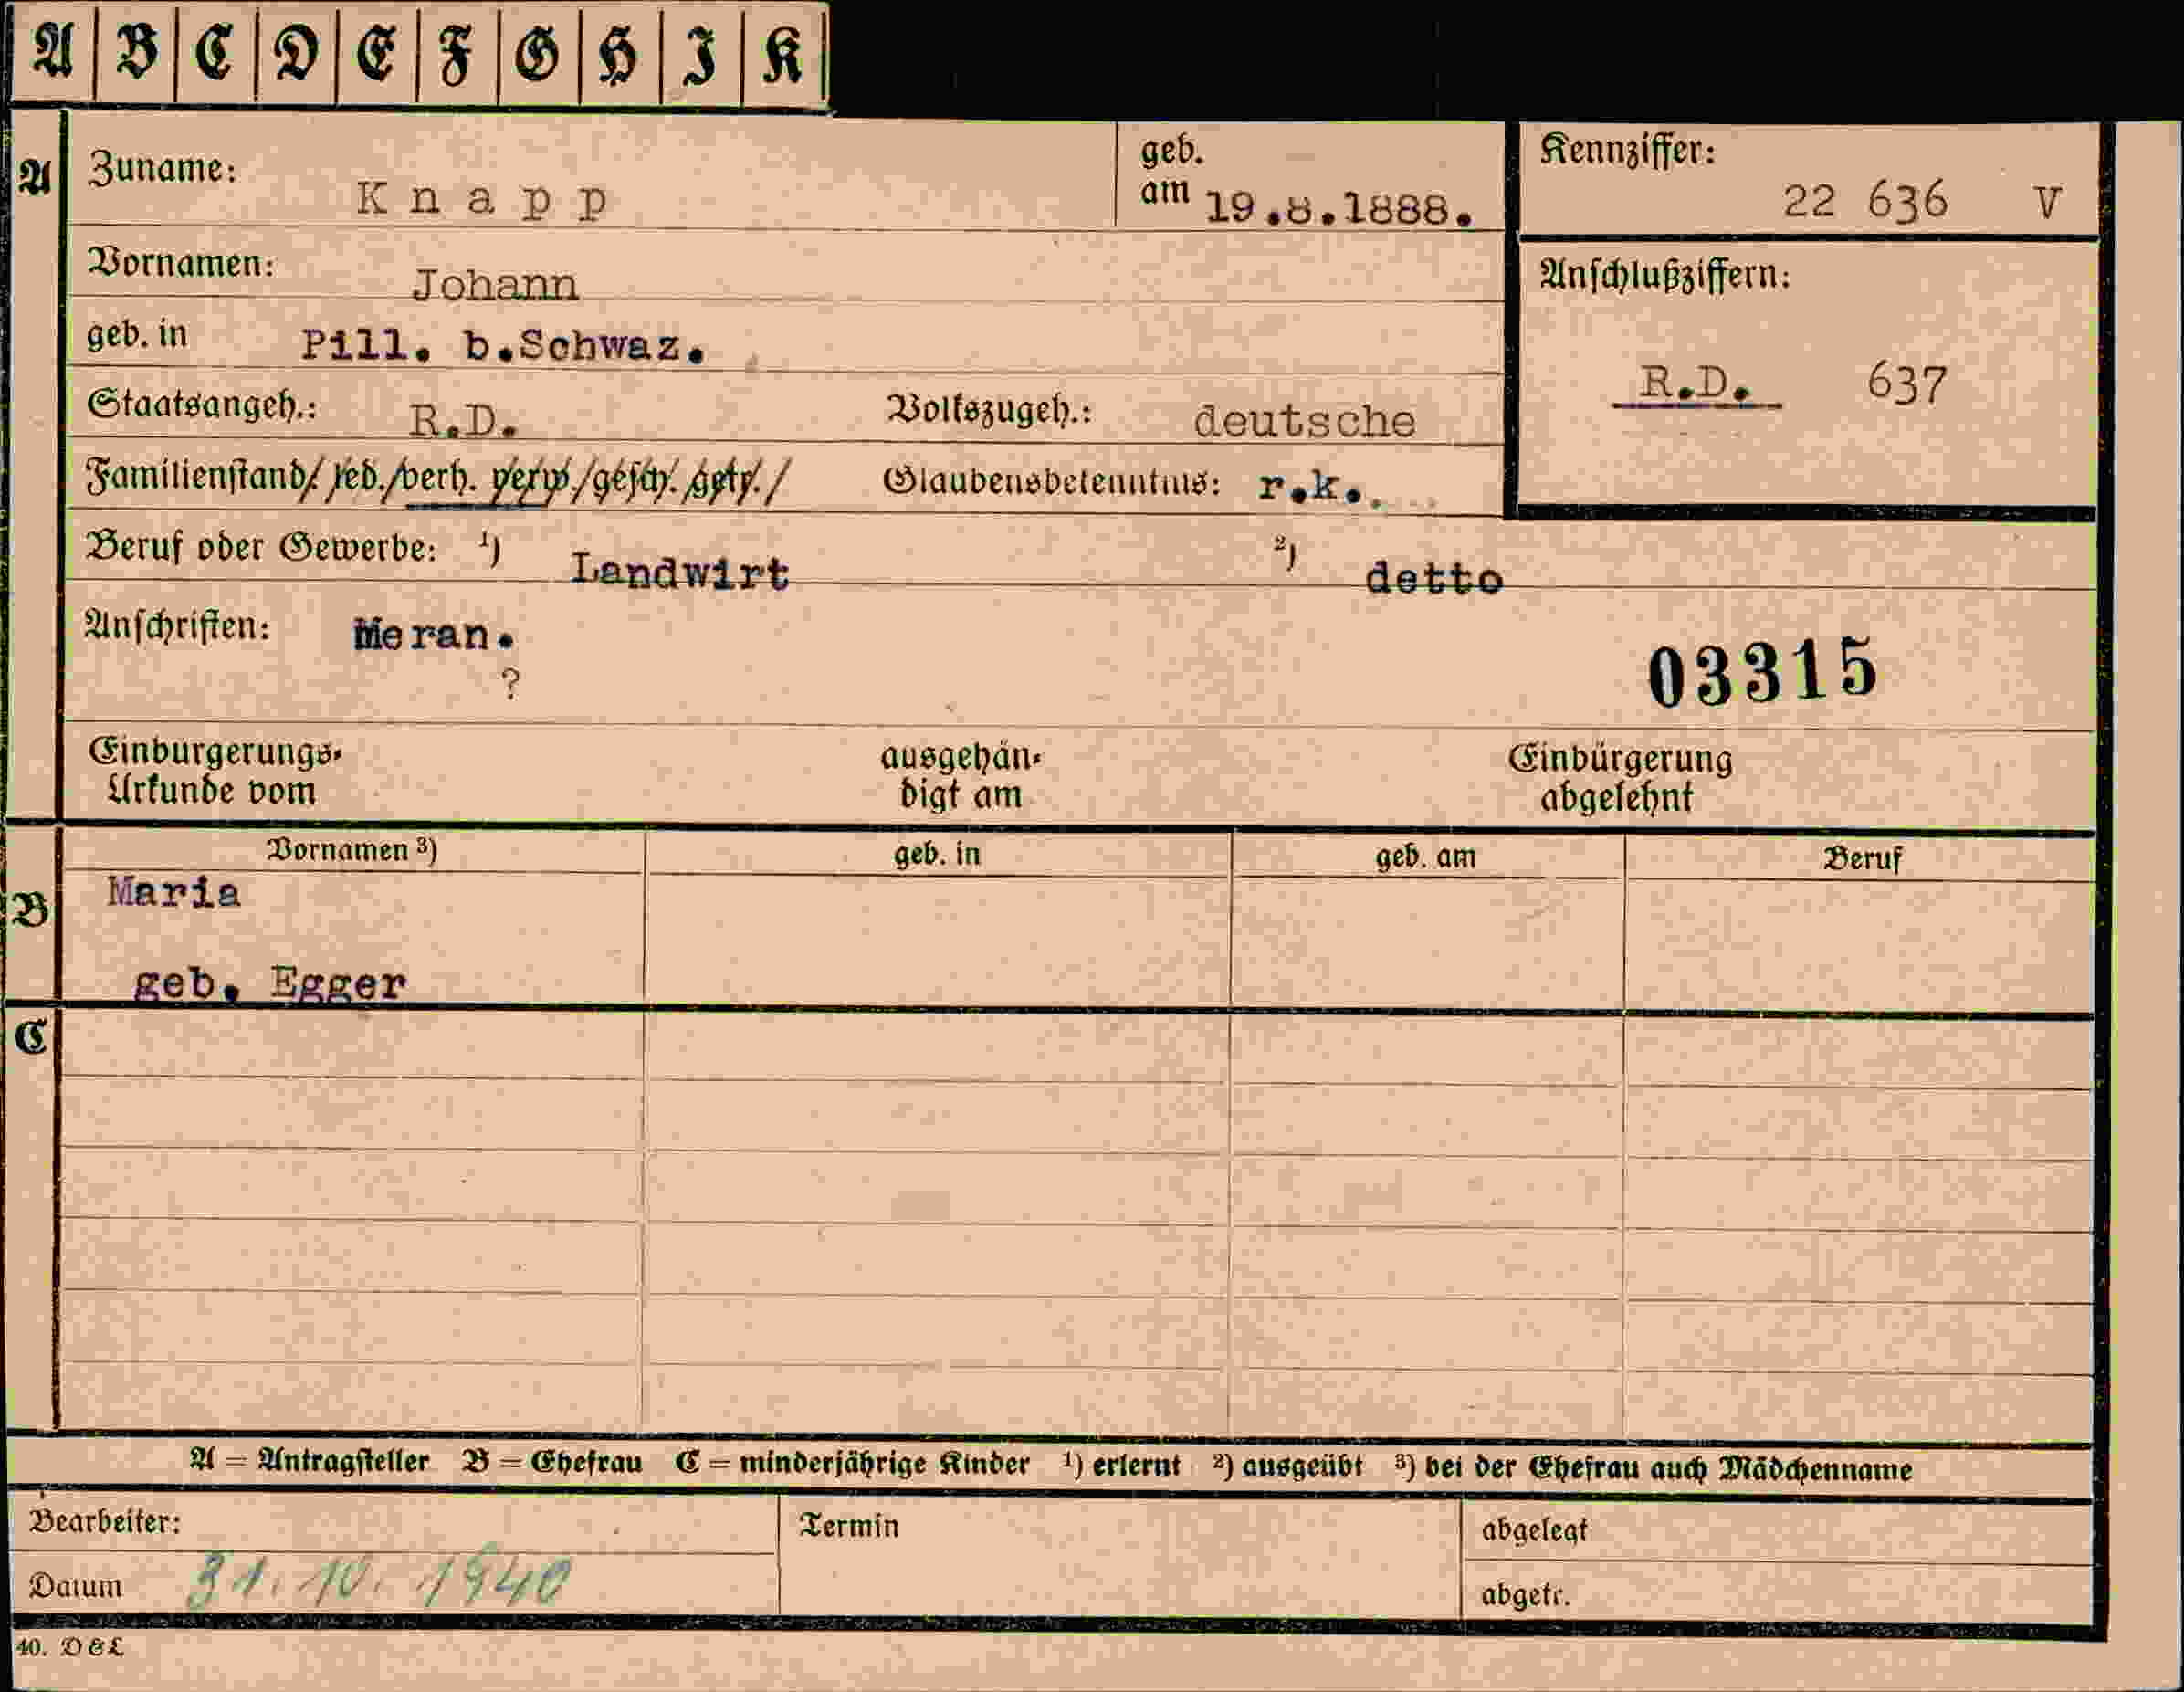 A B C D E F G H I K
A Zuname: Knapp geb. am 19.8.1888. Kennziffer: 22 636 V
Vornamen: Johann Anschlußziffern:
geb. in Pill. b.Schwaz. R.D. 637
Staatsangeh.: R.D. Volkszugeh.: deutsche
Familienstand/ led./verh. verw./gesch. getr./ Glaubensbekenntnis: r.k..
Beruf oder Gewerbe: 1) Landwirt 2) detto
Anschriften: Meran.
?
03315
Einbürgerungs- ausgehän- Einbürgerung
Urkunde vom digt am abgelehnt
Vornamen 3) geb. in geb. am Beruf
B Maria
geb. Egger
C
A = Antragsteller B = Ehefrau C = minderjährige Kinder 1) erlernt 2) ausgeübt 3) bei der Ehefrau auch Mädchenname
Bearbeiter: Termin abgelegt
Datum 31.10.1940 abgetr.
40. D&L